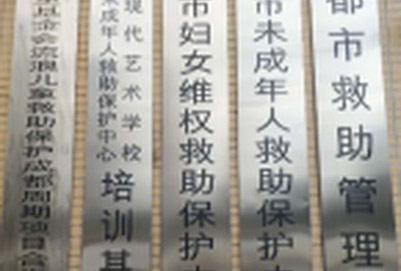 会流浪儿童救助保护成都周期项目合
未成年人救助保护中心
现代艺术学校
培训基
市妇女维权救助保护
市未成年人救助保护
都市救助管理